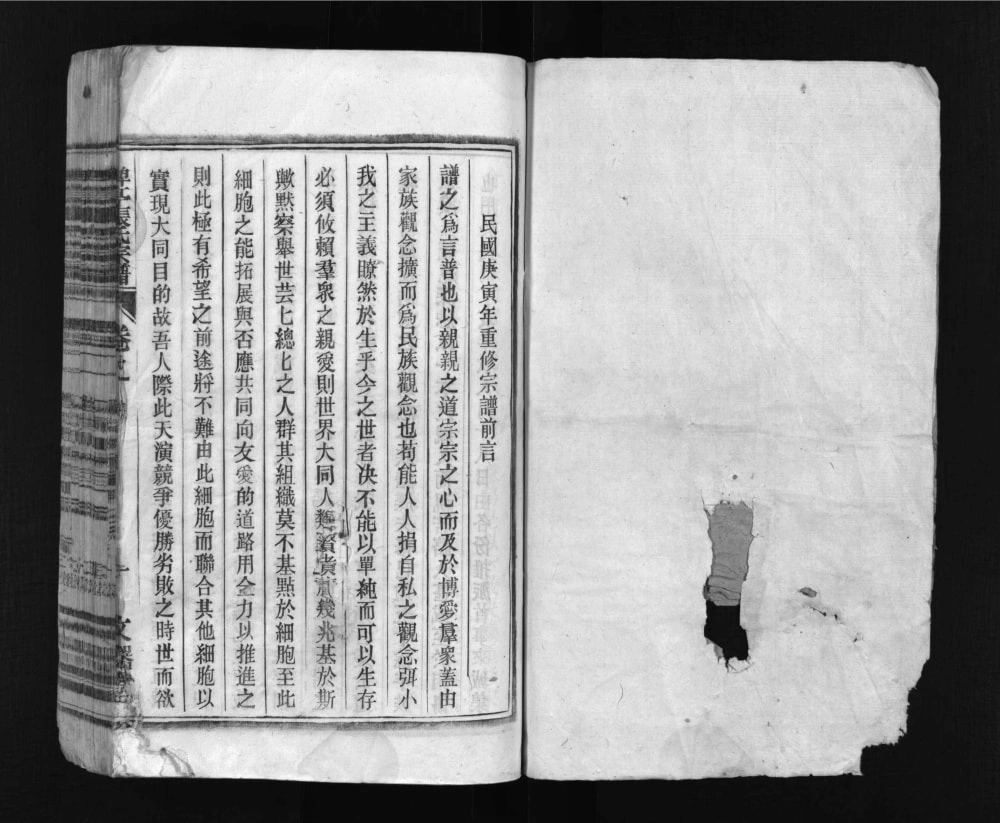 民國庚寅年重修宗譜前言
譜之爲言普也以親親之道宗宗之心而及於博愛羣衆蓋由
家族觀念擴而爲民族觀念也苟能人人捐自私之觀念弭小
我之主義瞭然於生乎今之世者决不能以單純而可以生存
必須攸賴羣衆之親愛則世界大同人類幾兆基於斯
歟默察舉世芸匕總匕之人群其組織莫不基點於細胞至此
細胞之能拓展與否應共同向友愛的道路用全力以推進之
則此極有希望之前途將不難由此細胞而聯合其他細胞以
實現大同目的故吾人際此天演競爭優勝劣敗之時世而欲
氏宗譜